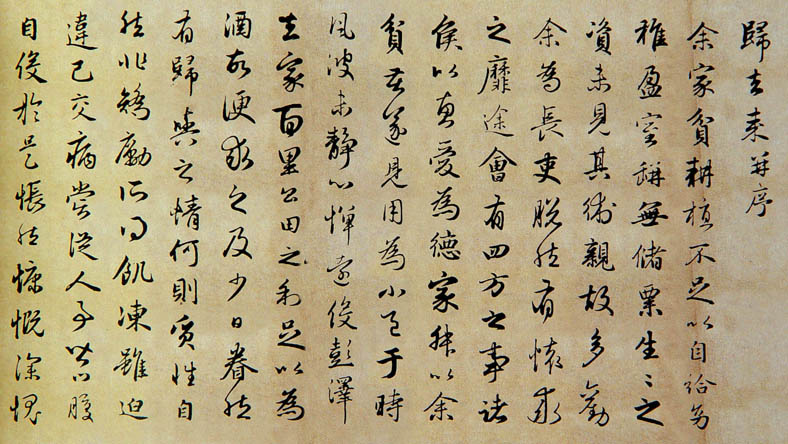 歸去來并序
余家貧耕植不足以自給幼
稚盈室缾無儲粟生〻之
資未見其術親故多勸
余為長吏脫然有懷求
之靡途會有四方之事諸
侯以惠愛為德家叔以余
貧苦遂見用為小邑于時
風波未靜心憚遠役彭澤
去家百里公田之利足以為
酒故便求之及少日眷然
有歸與之情何則質性自
然非矯勵所得飢凍雖迫
違己交病嘗從人事皆口腹
自役於是悵然慷慨深愧